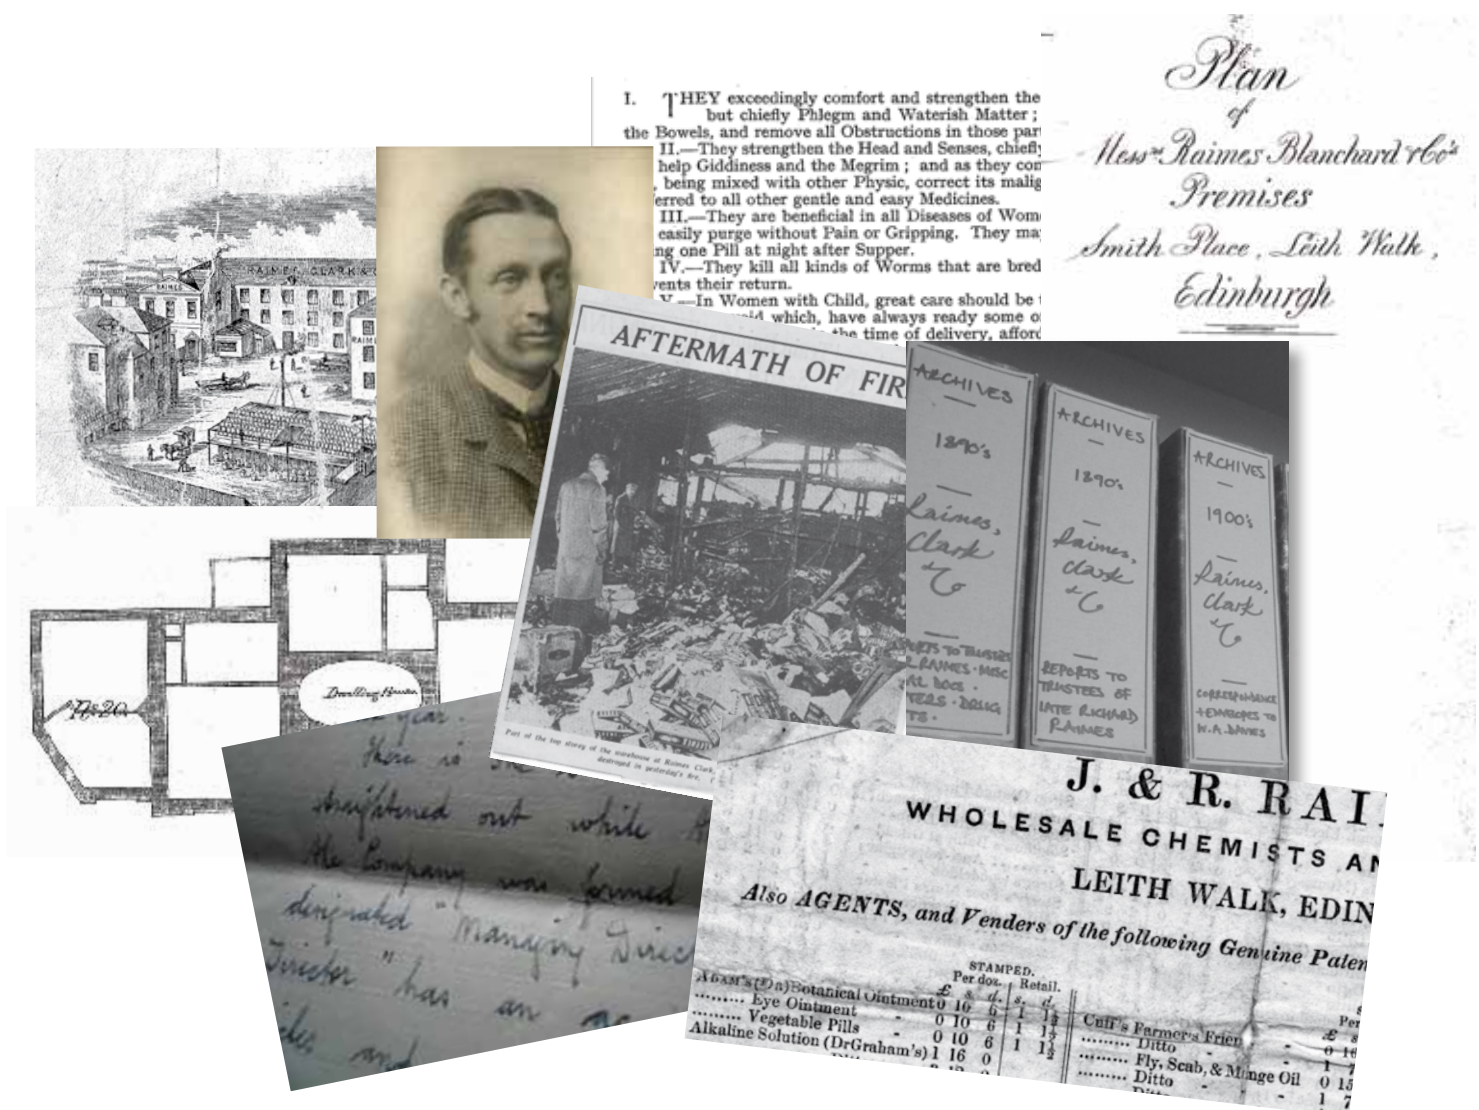 I. THEY exceedingly comfort and strengthen the
but chiefly Phlegm and Waterish Matter ;
the Bowels, and remove all Obstructions in those
II.—They strengthen the Head and Senses, chiefly
help Giddiness and the Megrim ; and as they
, being mixed with other Physic, correct its
to all other gentle and easy Medicines.
III.—They are beneficial in all Diseases of
easily purge without Pain or Gripping. They
one Pill at night after Supper.
IV.—They kill all kinds of Worms that are bred
their return.
V.—In Women with Child, great care should be
which, have always ready some
the time of delivery,
Plan
of
Messrs Raimes Blanchard & Co's
Premises
Smith Place, Leith Walk,
Edinburgh
RAIMES CLARK & C
RAIMES
RAIM
AFTERMATH OF FIR
Part of the top storey of the warehouse at Raimes Clark,
destroyed in yesterday's fire.
ARCHIVES
1890's
Raimes,
Clark
& Co
REPORTS TO TRUSTEES
RAIMES · MISC
DOCS ·
DRUG
ARCHIVES
1890's
Raimes,
Clark
& Co
REPORTS TO
TRUSTEES OF
LATE RICHARD
RAIMES
ARCHIVES
1900's
Raimes,
Clark
& Co
CORRESPONDENCE
+ ENVELOPES TO
W.A. DAVIES
Dwelling House
year.
There is
straightened out while
the Company was formed
designated "Managing
Director" has an
and
J. & R. RAI
WHOLESALE CHEMISTS AN
LEITH WALK, EDIN
Also AGENTS, and Venders of the following Genuine Paten
STAMPED.
Per doz. Retail.
£ s. d. s. d.
ADAM'S (Dr) Botanical Ointment 0 10 6 1 1½
......... Eye Ointment - 0 10 6 1 1½
......... Vegetable Pills - 0 10 6 1 1½
Alkaline Solution (Dr Graham's) 1 16 0
Per
£ s
Cuff's Farmer's Frien
......... Ditto - -
......... Fly, Scab, & Mange Oil 0 15
......... Ditto - - 1 7